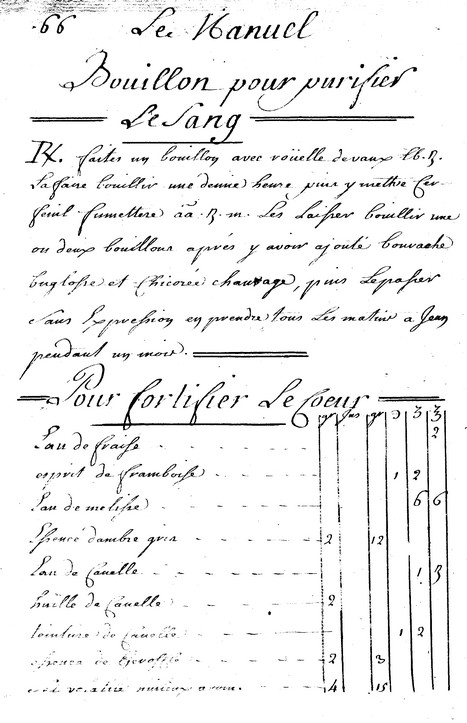 66 Le Manuel
Bouillon pour purifier
Le Sang
faites un bouillon avec roüelle de vaux
faire bouillir une demie heure puis y mettre Cer
feuil fumettere āā Les Laisser bouillir une
ou deux bouillons aprés y avoir ajouté bourache
buglosse et Chicorée chauvage, puis Lepasser
Sans Expression en prendre tous Les matins a Jeun
pendant un mois.
Pour fortifier Le Coeur
gr ℈ ʒ ℥
Eau de fraise 2
esprit de framboise 1 2
Eau de melisse 6 6
Essence dambre gris 2 12
Eau de Canelle 1 3
huille de Canelle 2
teinture de Canelle 1 2
essence de 2 3
4 15